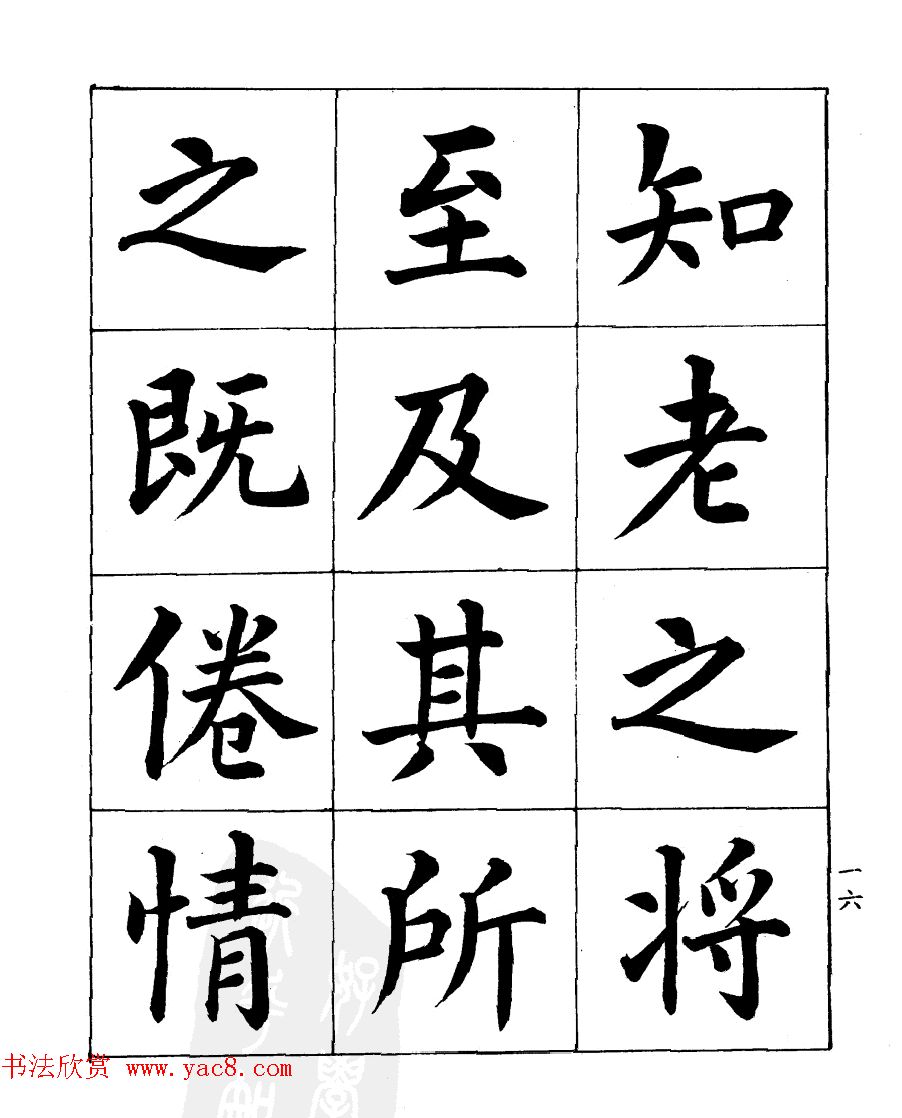 知老之将
至及其所
之既倦情
一六
书法欣赏 www.yac8.com